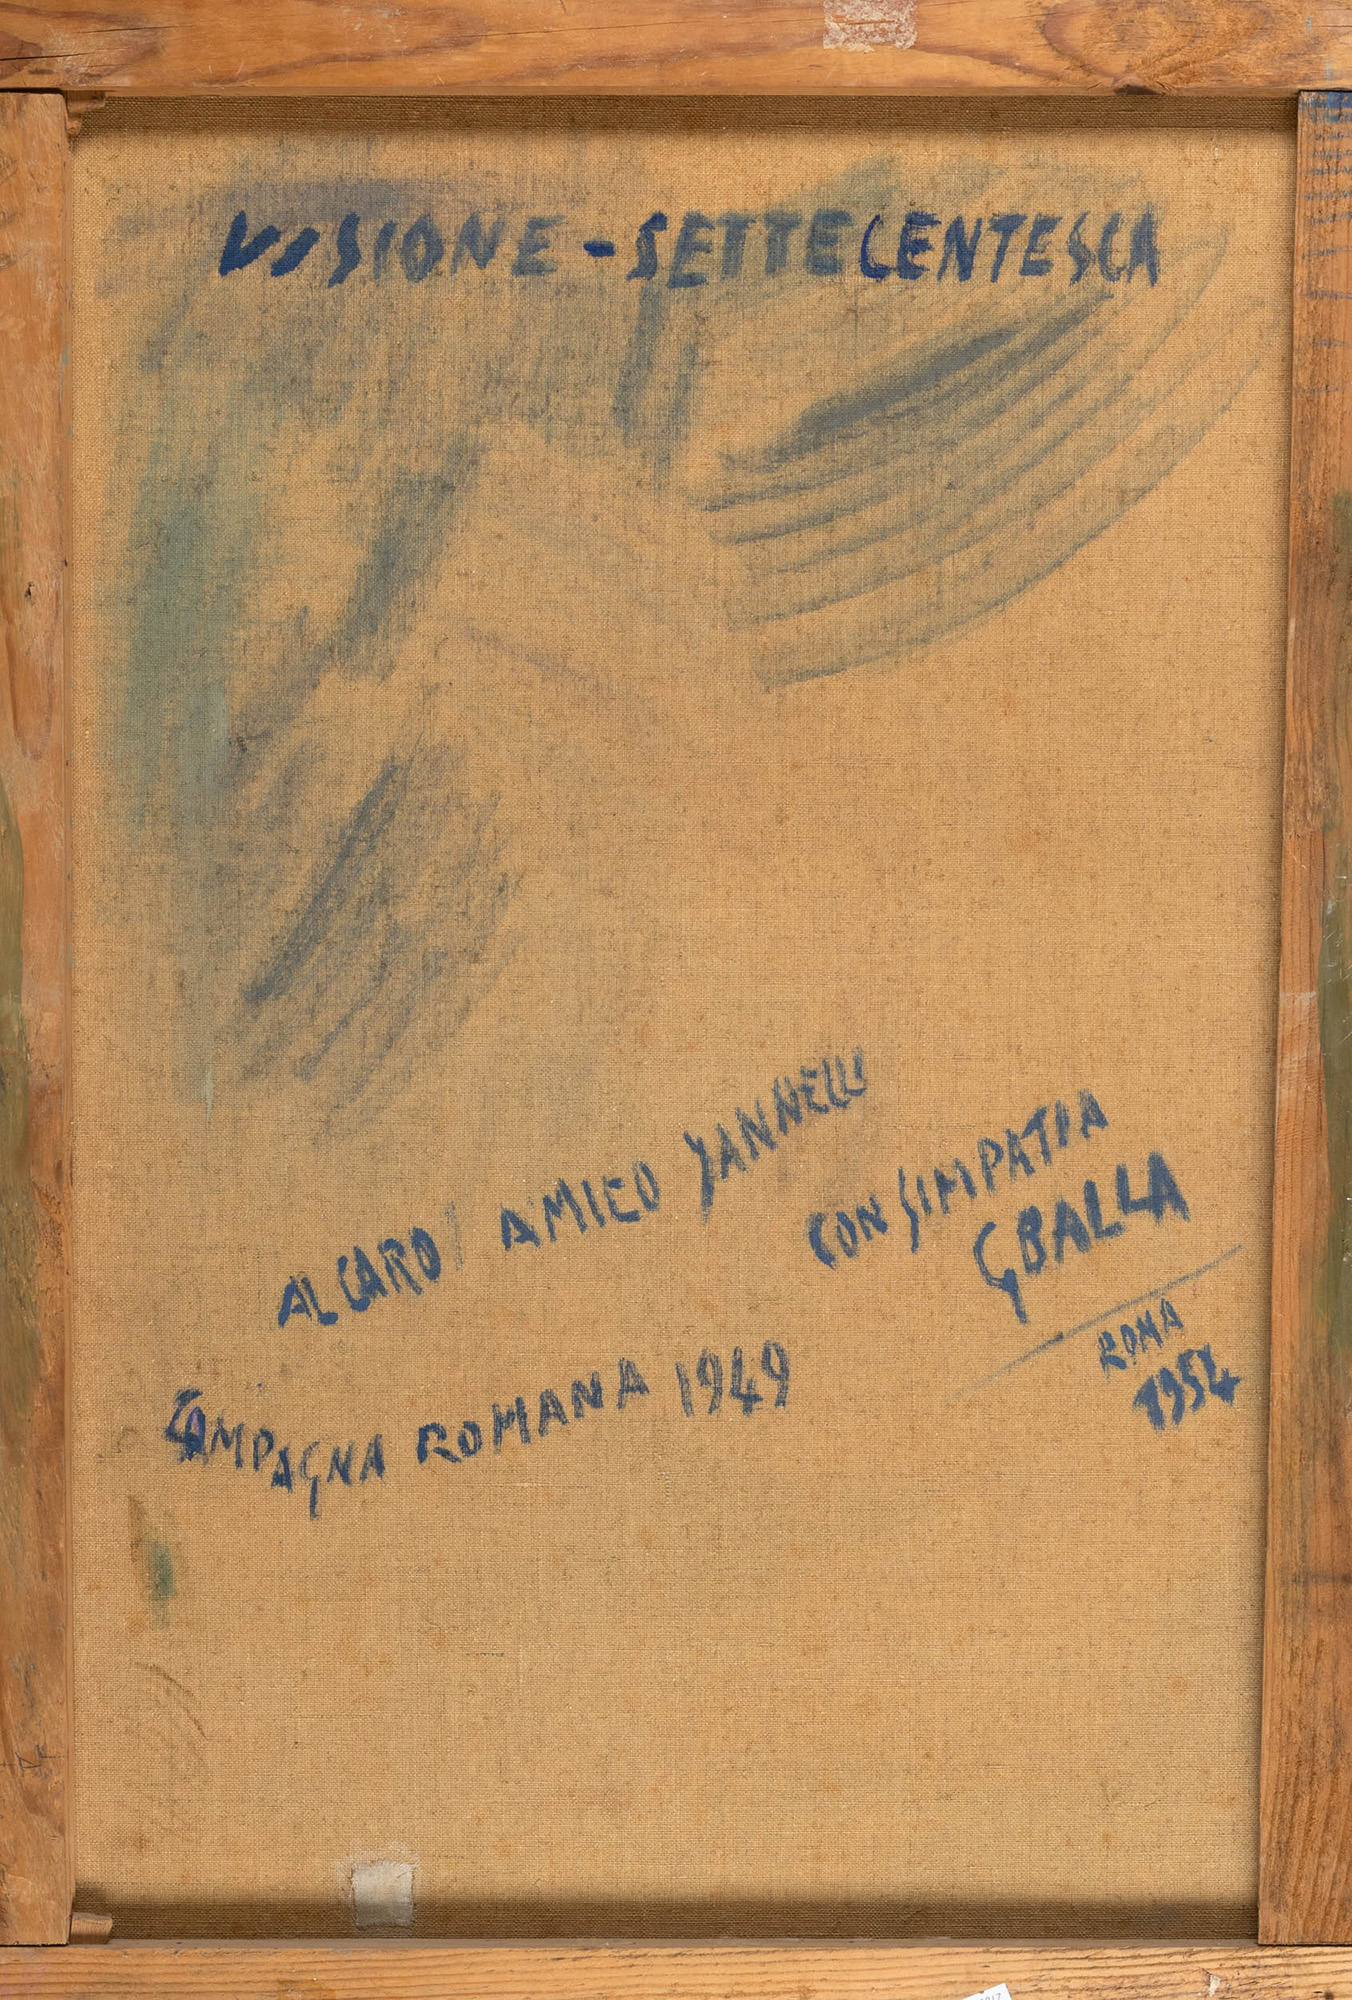 VISIONE - SETTECENTESCA
AL CARO AMICO YANNELLI
CON SIMPATIA
G BALLA
ROMA
1954
CAMPAGNA ROMANA 1949